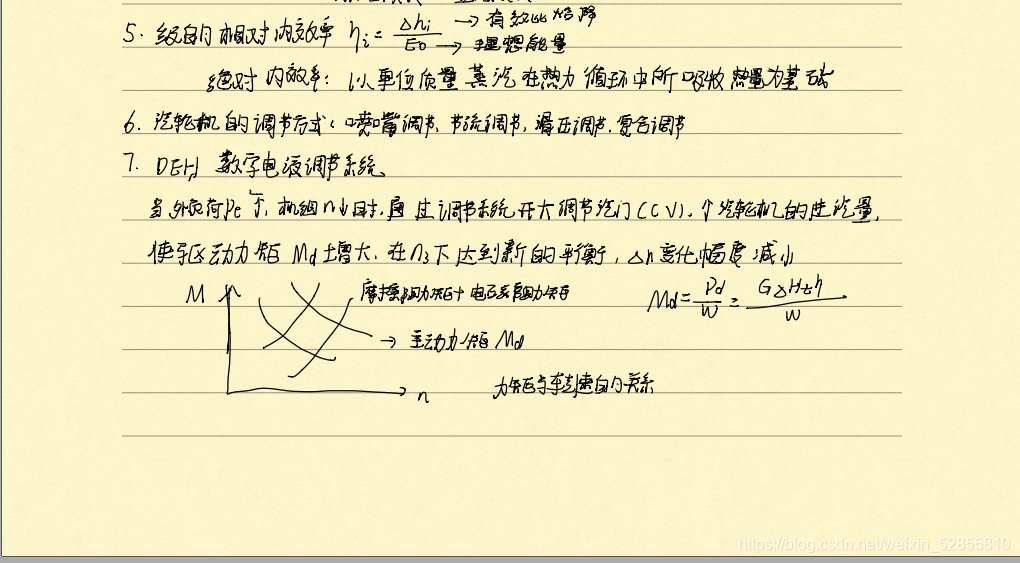 5. 级的相对内效率 ηi = Δhi / E0 → 有效比焓降 → 理想能量
绝对内效率: 以单位质量蒸汽在热力循环中所吸收热量为基础
6. 汽轮机的调节方式: 喷嘴调节、节流调节, 滑压调节. 复合调节
7. DEH 数字电液调节系统
当外负荷Pe↑, 机组n↓时, 通过调节系统开大调节汽门(CV), 个汽轮机的进汽量,
使驱动力矩 Md 增大. 在n3下达到新的平衡, Δn变化幅度减小
M 摩擦阻力矩+电磁阻力矩 Md = Pd/W = GΔHtη/W
→ 主动力矩 Md
n 力矩与转速的关系
https://blog.csdn.net/weixin_52855810